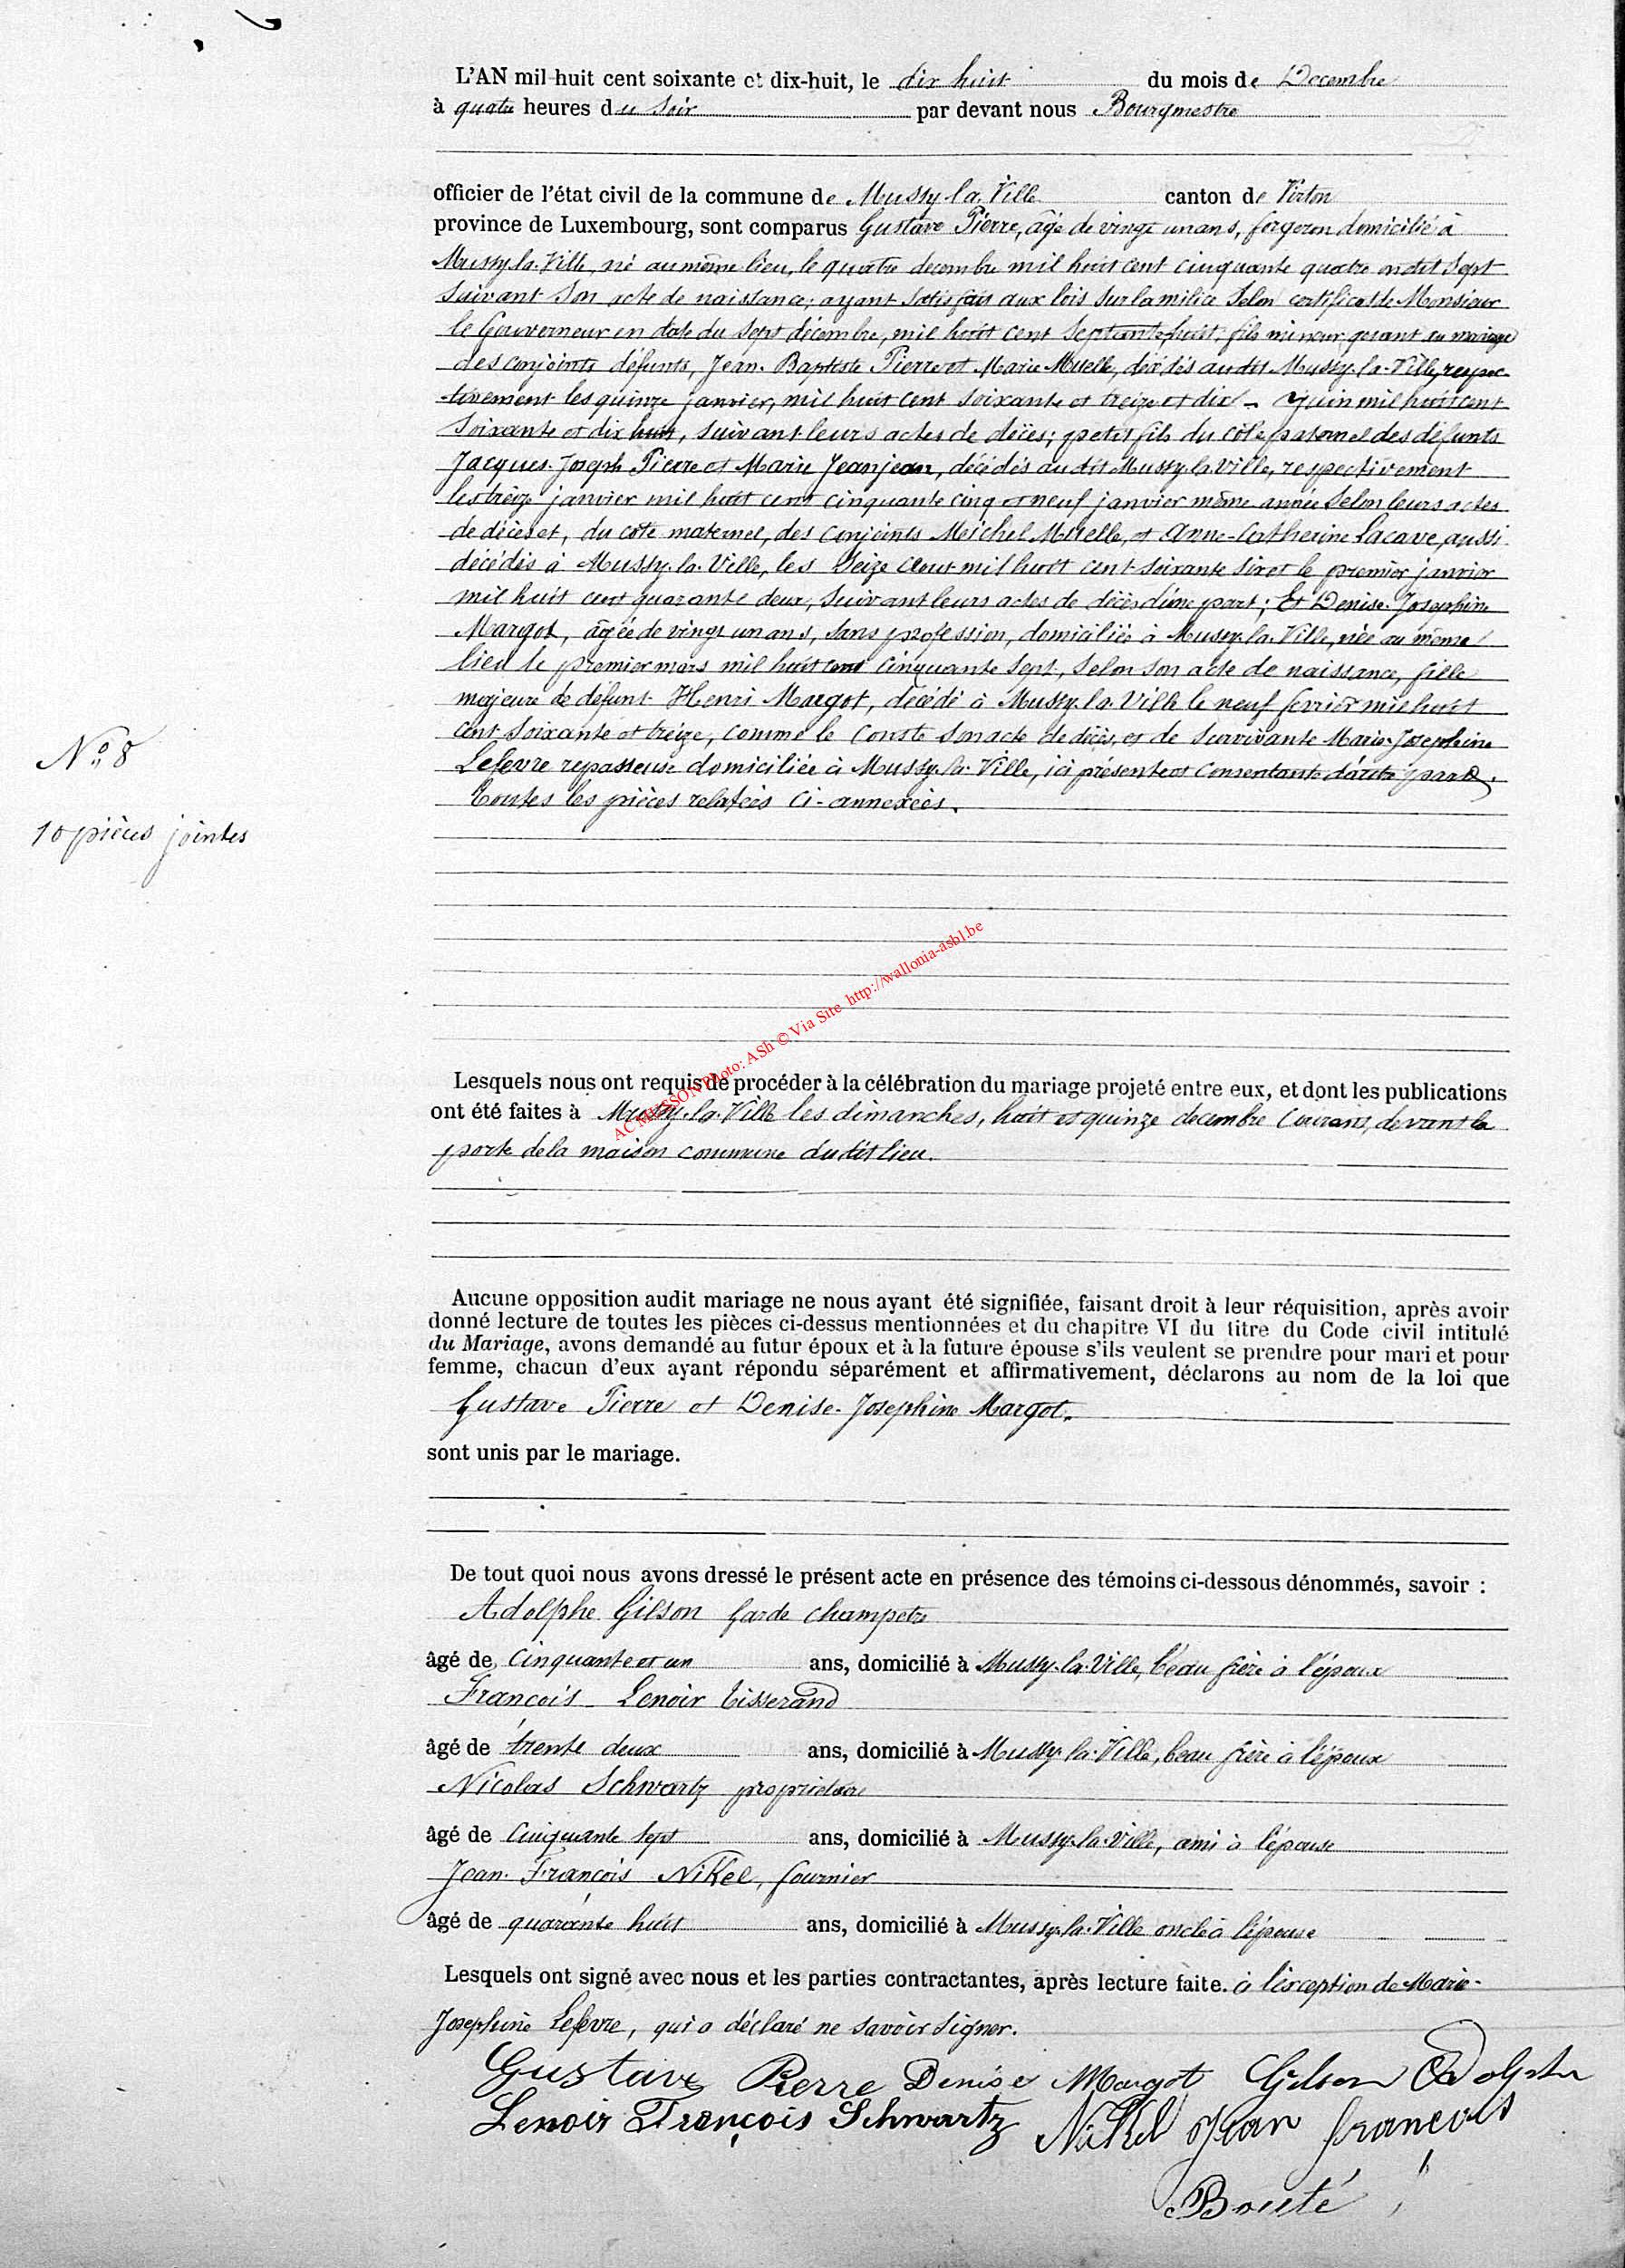 L'AN mil huit cent soixante et dix-huit, le dix huit du mois de Décembre
à quatre heures du soir par devant nous Bourgmestre
officier de l'état civil de la commune de Mussy-la-Ville canton de Virton
province de Luxembourg, sont comparus Gustave Pierre, âgé de vingt un ans, forgeron domicilié à
Mussy-la-Ville, né au même lieu, le quatre decembre mil huit cent cinquante quatre on dit sept
suivant son acte de naissance; ayant satisfait aux lois sur la milice selon certificat de Monsieur
le Gouverneur en date du sept décembre, mil huit cent septante huit, fils mineur quant au mariage
des conjoints défunts, Jean-Baptiste Pierre et Marie Muelle, décédés audit Mussy-la-Ville, respec-
-tivement les quinze janvier, mil huit cent soixante et treize et dix - juin mil huit cent
soixante et dix huit, suivant leurs actes de décès; petit fils du côté paternel des défunts
Jacques-Joseph Pierre et Marie Jeanjean, décédés au dit Mussy-la-Ville, respectivement
les treize janvier mil huit cent cinquante cinq et neuf janvier même année selon leurs actes
de décès et, du côté maternel, des conjoints Meichel Muelle, et Anne-Catherine Lacave, aussi
décédés à Mussy-la-Ville, les seize aout mil huit cent soixante six et le premier janvier
mil huit cent quarante deux, suivant leurs actes de décès d'une part; Et Denise-Josephine
Margot, âgée de vingt un ans, sans profession, domiciliée à Mussy-la-Ville, née au même
lieu le premier mars mil huit cent cinquante sept, selon son acte de naissance, fille
majeure de défunt Henri Margot, décédé à Mussy-la-Ville le neuf fevrier mil huit
cent soixante et treize, comme le conste son acte de décès, et de survivante Marie-Josephine
Lefevre repasseuse domiciliée à Mussy-la-Ville, ici présente et consentante d'autre part.
Toutes les pièces relatées ci-annexées.
N° 8
10 pièces jointes
AC MUSSON Photo: ASh © Via Site http://wallonia-asbl.be
Lesquels nous ont requis de procéder à la célébration du mariage projeté entre eux, et dont les publications
ont été faites à Mussy-la-Ville les dimanches, huit et quinze decembre courant, devant la
porte de la maison commune dudit lieu.
Aucune opposition audit mariage ne nous ayant été signifiée, faisant droit à leur réquisition, après avoir
donné lecture de toutes les pièces ci-dessus mentionnées et du chapitre VI du titre du Code civil intitulé
du Mariage, avons demandé au futur époux et à la future épouse s'ils veulent se prendre pour mari et pour
femme, chacun d'eux ayant répondu séparément et affirmativement, déclarons au nom de la loi que
Gustave Pierre et Denise-Josephine Margot.
sont unis par le mariage.
De tout quoi nous avons dressé le présent acte en présence des témoins ci-dessous dénommés, savoir :
Adolphe Gilson garde champetre
âgé de cinquante et un ans, domicilié à Mussy-la-Ville, beau frère à l'époux
François Lenoir tisserand
âgé de trente deux ans, domicilié à Mussy-la-Ville, beau frère à l'époux
Nicolas Schwartz propriétaire
âgé de cinquante sept ans, domicilié à Mussy-la-Ville, ami à l'épouse
Jean-François Nikel, fournier
âgé de quarante huit ans, domicilié à Mussy-la-Ville oncle à l'épouse
Lesquels ont signé avec nous et les parties contractantes, après lecture faite. à l'exception de Marie-
Josephine Lefevre, qui a déclaré ne savoir signer.
Gustave Pierre Denise Margot Gilson Adolphe
Lenoir François Schwartz Nikel Jean françois
Bouté